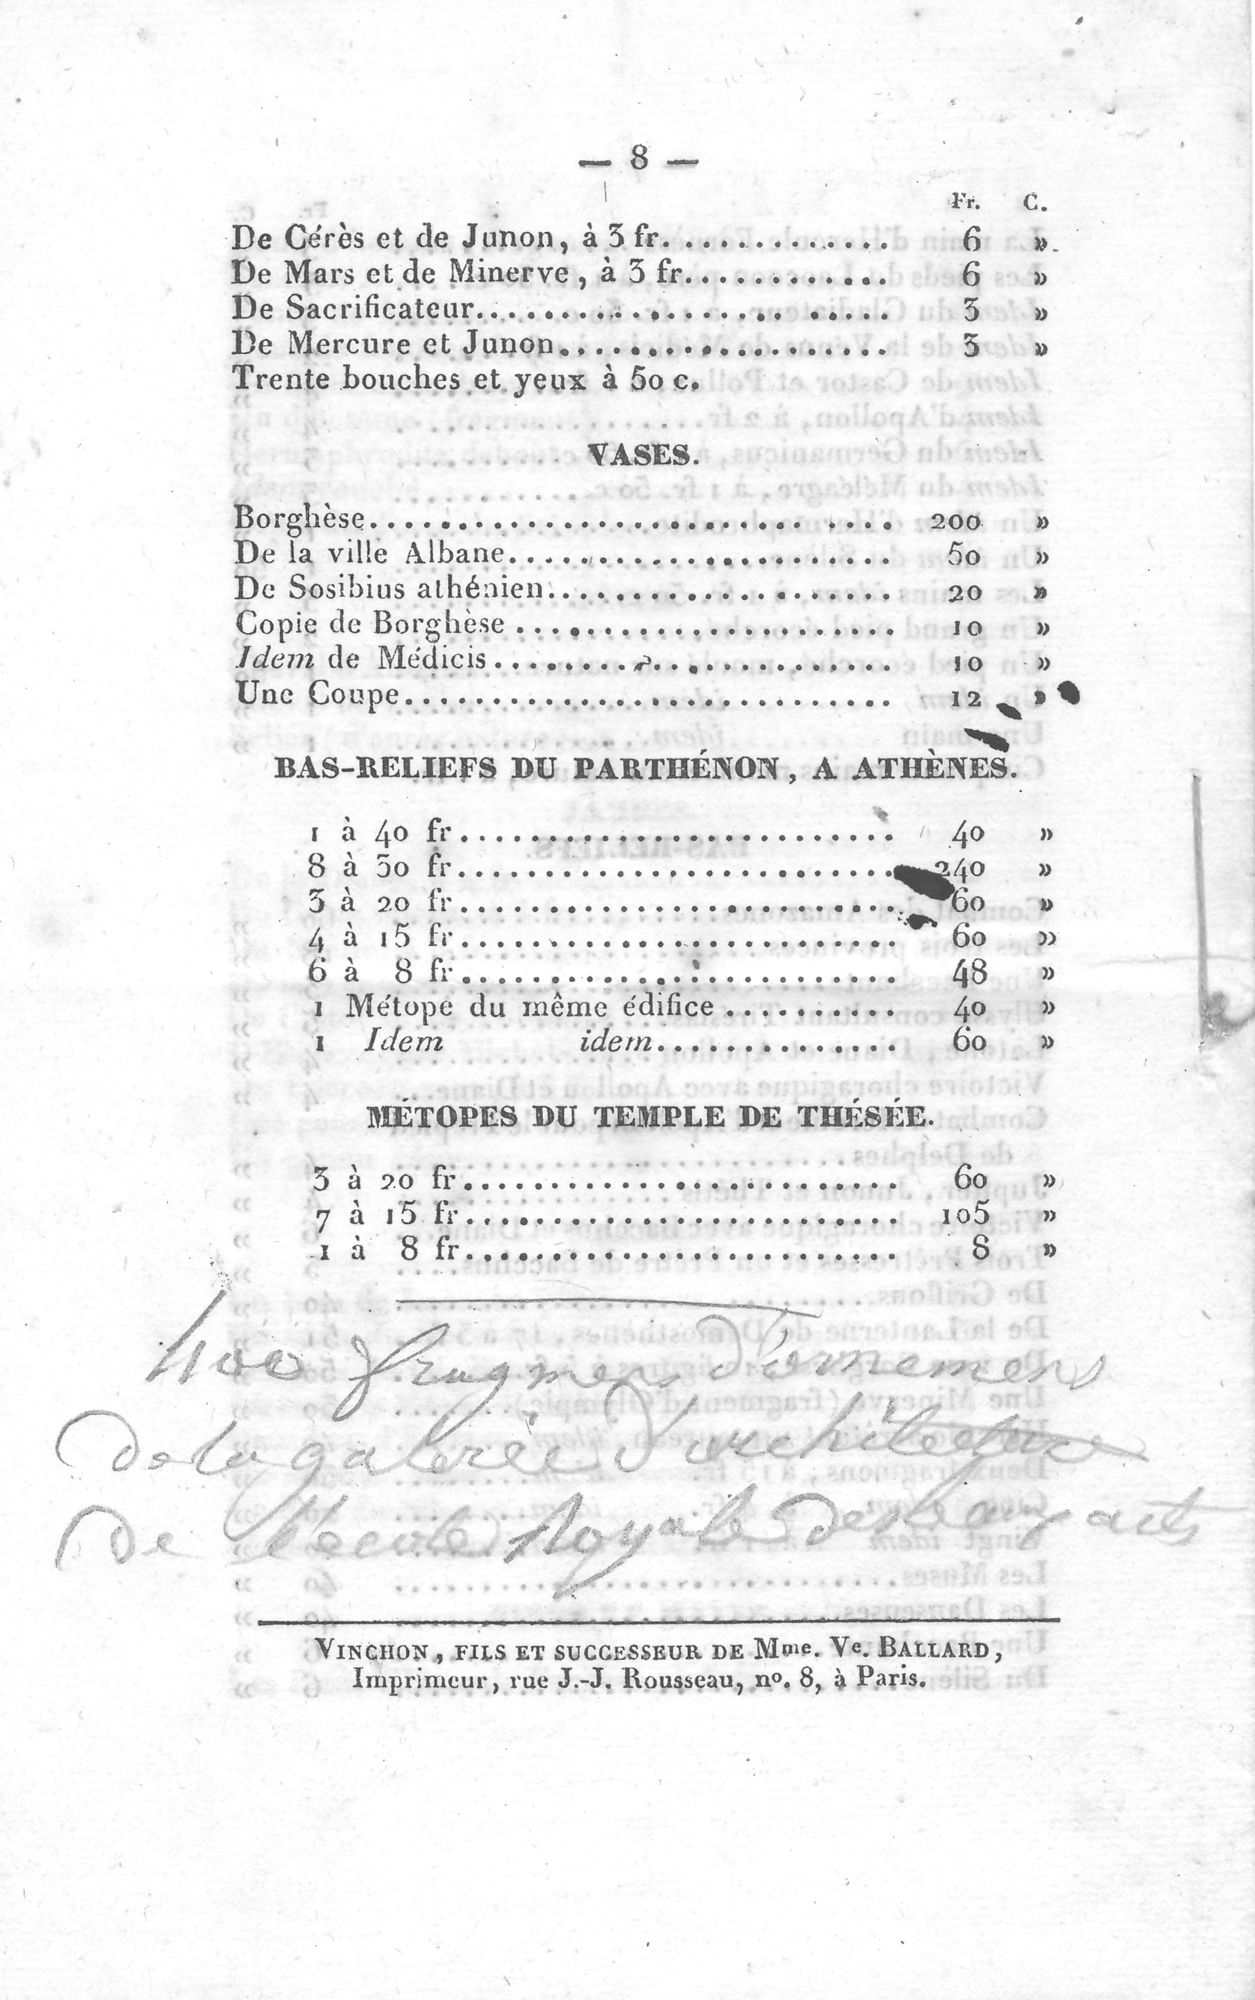 — 8 —
Fr. C.
De Cérès et de Junon, à 3 fr. . . . . . . . . . . . . 6 »
De Mars et de Minerve, à 3 fr. . . . . . . . . . . . 6 »
De Sacrificateur. . . . . . . . . . . . . . . . . . . 3 »
De Mercure et Junon. . . . . . . . . . . . . . . . 3 »
Trente bouches et yeux à 50 c.
VASES.
Borghèse. . . . . . . . . . . . . . . . . . . . . . . 200 »
De la ville Albane. . . . . . . . . . . . . . . . . . 50 »
De Sosibius athénien. . . . . . . . . . . . . . . . 20 »
Copie de Borghèse . . . . . . . . . . . . . . . . . 10 »
Idem de Médicis. . . . . . . . . . . . . . . . . . 10 »
Une Coupe. . . . . . . . . . . . . . . . . . . . . . 12 »
BAS-RELIEFS DU PARTHÉNON, A ATHÈNES.
1 à 40 fr. . . . . . . . . . . . . . . . . . . . 40 »
8 à 30 fr. . . . . . . . . . . . . . . . . . . . 240 »
3 à 20 fr. . . . . . . . . . . . . . . . . . . . 60 »
4 à 15 fr. . . . . . . . . . . . . . . . . . . . 60 »
6 à 8 fr. . . . . . . . . . . . . . . . . . . . 48 »
1 Métope du même édifice . . . . . . . . . . 40 »
1 Idem idem. . . . . . . . . . . . . . 60 »
MÉTOPES DU TEMPLE DE THÉSÉE.
3 à 20 fr. . . . . . . . . . . . . . . . . . . . 60 »
7 à 15 fr. . . . . . . . . . . . . . . . . . . . 105 »
1 à 8 fr. . . . . . . . . . . . . . . . . . . . 8 »
400 fragmens d'ornemens
de la galerie d'architecture
de l'ecole Royale des beaux arts
VINCHON, FILS ET SUCCESSEUR DE Mme. Ve. BALLARD,
Imprimeur, rue J.-J. Rousseau, no. 8, à Paris.